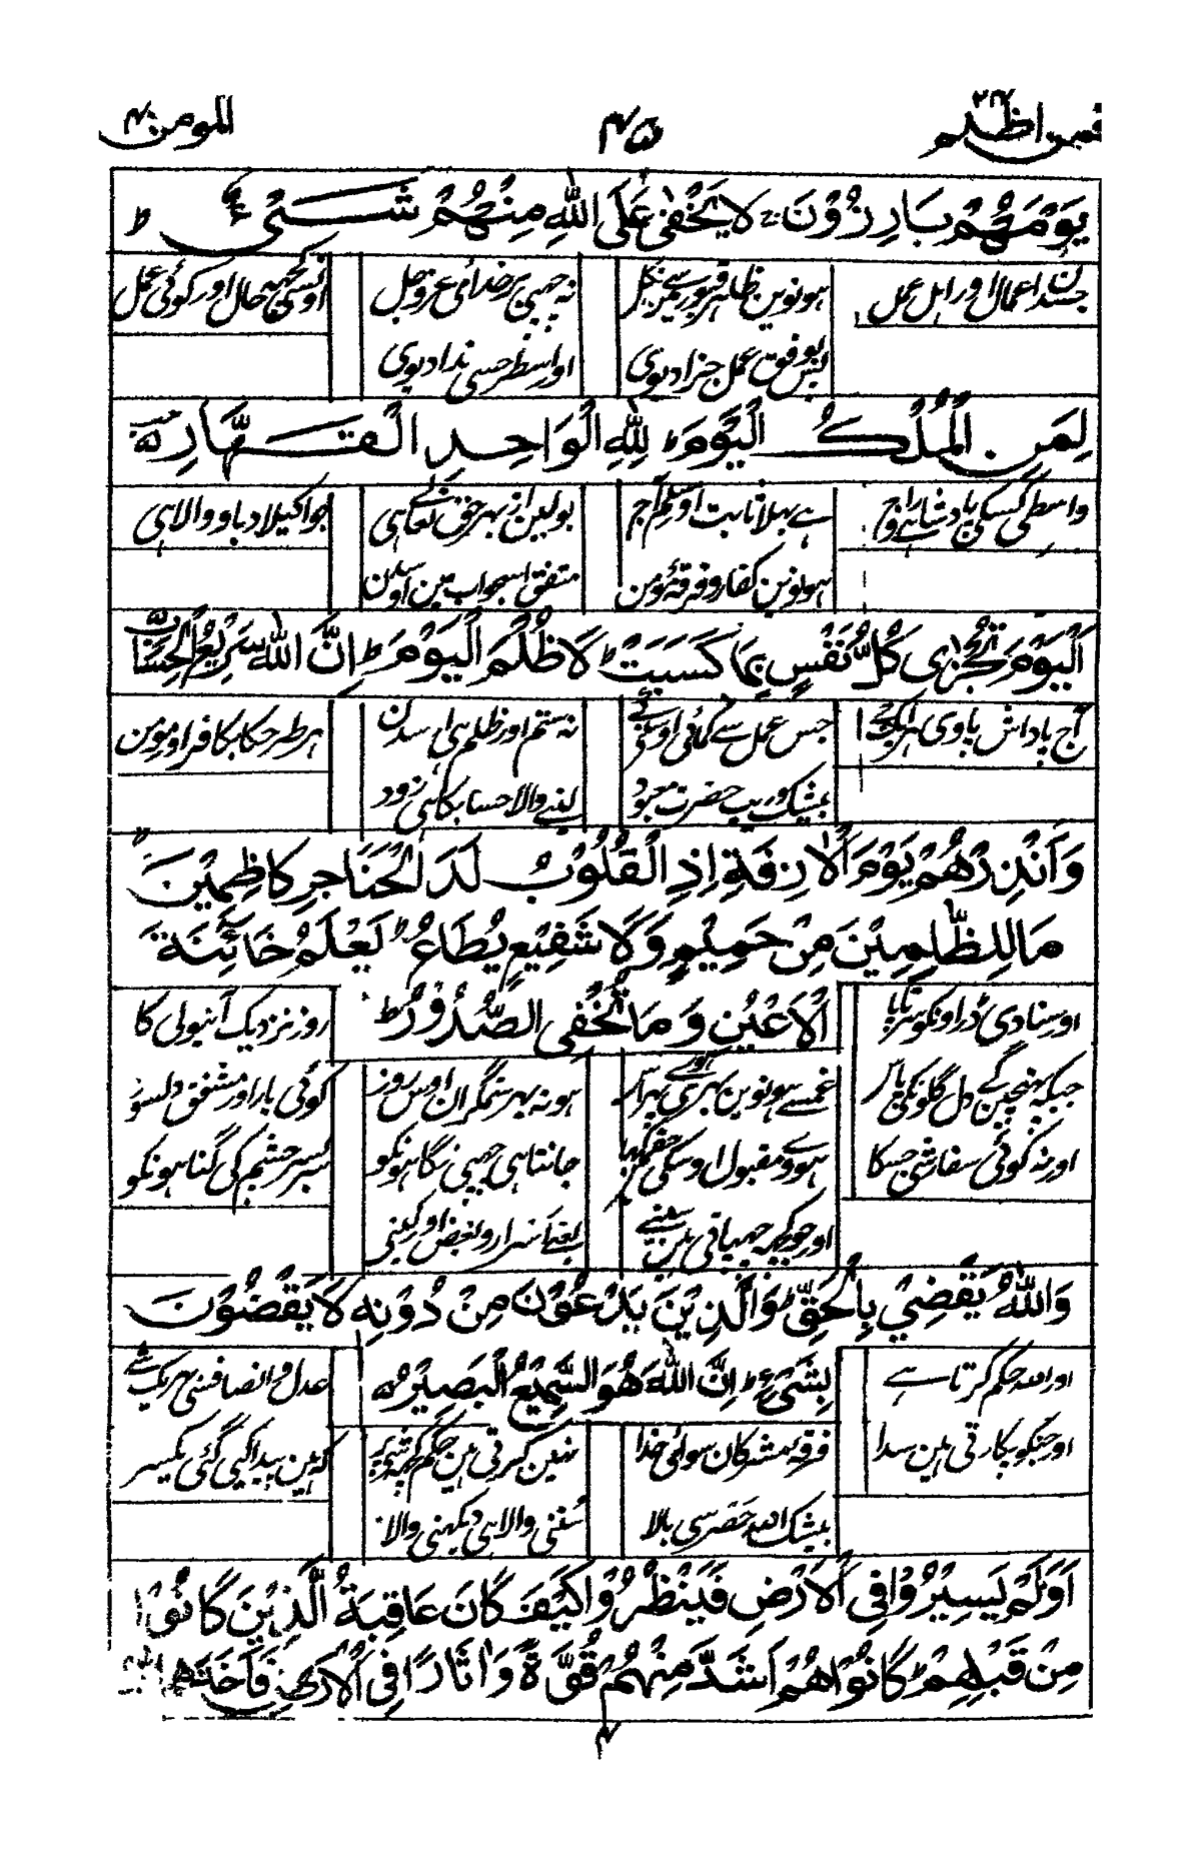 فمن اظلم ۲۴
۴۵
المومن ۴۰
يَوْمَهُمْ بَارِزُوْنَ لَا يَخْفٰى عَلَى اللّٰهِ مِنْهُمْ شَيْءٌ ط
جسدن اعمال اور اہل عمل
ہونوین ظاہر قبور سے نکل
نہ چھپی بر خدائی عزوجل
اونسی کچھہ حال اور کوئی عمل
بس بوفق عمل جزا دیوی
اور اسطرحسی ندا دیوی
لِمَنِ الْمُلْكُ الْيَوْمَ ط لِلّٰهِ الْوَاحِدِ الْقَهَّارِ
واسطی کسکی بادشاہی آج
ہے بہلا ثابت اور مسلم آج
بولین از بہر حق تعالے ہی
جو اکیلا دباو والا ہی
ہونوین کفار و فرقۂ مومن
متفق اسجواب مین اوسدن
اَلْيَوْمَ تُجْزٰى كُلُّ نَفْسٍ بِمَا كَسَبَتْ ط لَا ظُلْمَ الْيَوْمَ ط اِنَّ اللّٰهَ سَرِيْعُ الْحِسَابِ
آج پاداش پاوی ہر یک جی
جس عمل سے کمائی اوسنے کی
نہ ستم اور ظلم ہی اسدن
ہر طرحکا بکافر اور مومن
بیشک و ریب حضرت معبود
لینے والا حسابکا ہی زود
وَاَنْذِرْهُمْ يَوْمَ الْاٰزِفَةِ اِذِ الْقُلُوْبُ لَدَ الْحَنَاجِرِ كَاظِمِيْنَ
مَا لِلظّٰلِمِيْنَ مِنْ حَمِيْمٍ وَّلَا شَفِيْعٍ يُّطَاعُ ط يَعْلَمُ خَآئِنَةَ
الْاَعْيُنِ وَمَا تُخْفِى الصُّدُوْرُ ط
اور سنا دی ڈر اونکو سرتاپا
روز نزدیک آنیولی کا
جبکہ پہنچین گے دل گلونکی پاس
غمسے ہونوین بھری ہوے
ہو نہ بہر ستمگران اوس روز
کوئی یار اور مشفق دلسوز
اور نہ کوئی سفارشی جسکا
ہووے مقبول اوسکی
جانتا ہی چھپی نگاہونکو
سر بسر چشم کی گناہونکو
اور جو کچہہ چھپاتی ہین سینے
یعنے اسرار و بغض اور کینی
وَاللّٰهُ يَقْضِيْ بِالْحَقِّ ط وَالَّذِيْنَ يَدْعُوْنَ مِنْ دُوْنِهٖ لَا يَقْضُوْنَ
بِشَيْءٍ ط اِنَّ اللّٰهَ هُوَ السَّمِيْعُ الْبَصِيْرُ
اور اللہ حکم کرتا ہے
عدل و انصافسی ہر یک شے
اور جنکو پکارتی ہین سدا
فرقۂ مشرکان سوائی خدا
نہین کرتی ہین حکم کچہہ شی پر
کہ ہین پیدا کیی گئی یکسر
بیشک اللہ حضرسی بالا
سننی والا ہی دیکھنی والا
اَوَلَمْ يَسِيْرُوْا فِى الْاَرْضِ فَيَنْظُرُوْا كَيْفَ كَانَ عَاقِبَةُ الَّذِيْنَ كَانُوْا
مِنْ قَبْلِهِمْ ط كَانُوْا هُمْ اَشَدَّ مِنْهُمْ قُوَّةً وَّاٰثَارًا فِى الْاَرْضِ فَاَخَذَهُمُ اللّٰهُ